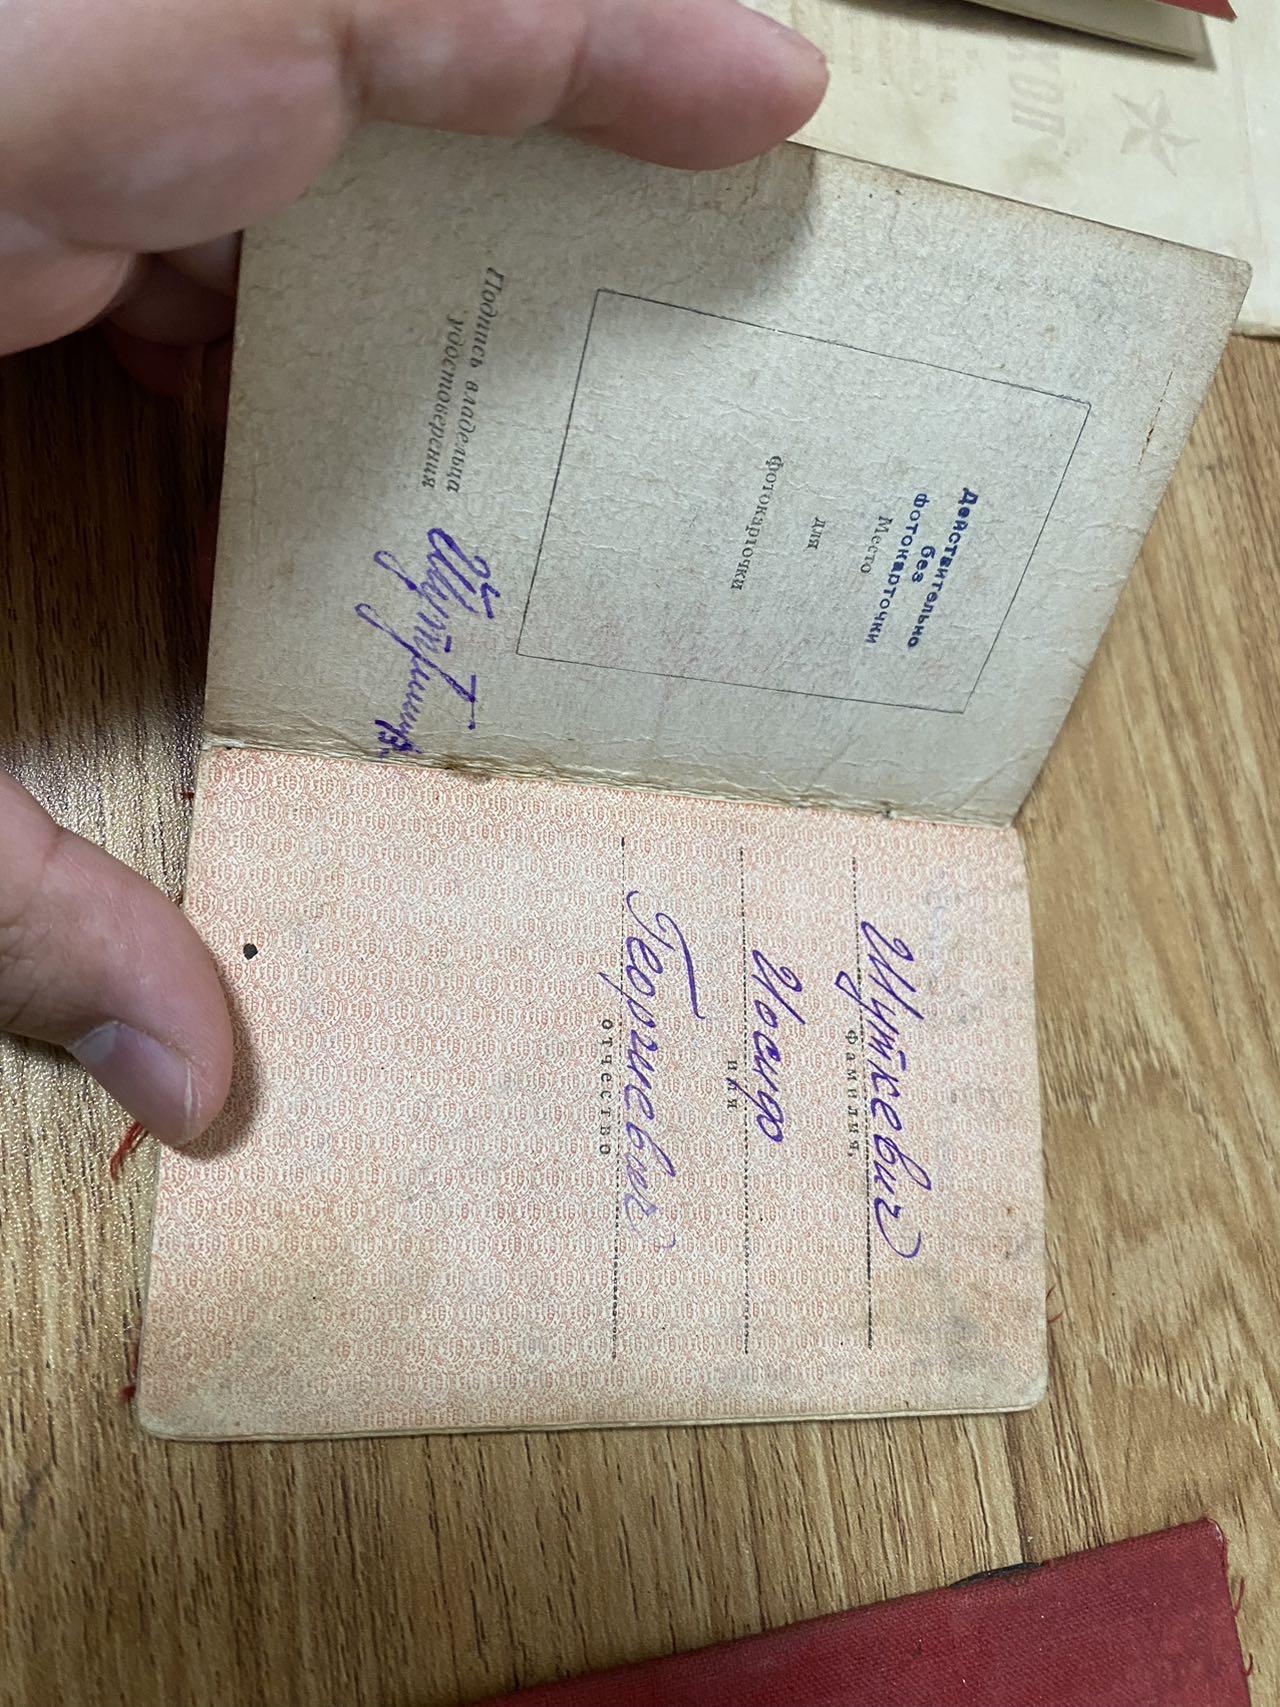 Действительно
без
фотокарточки
Место
для
фотокарточки
Подпись владельца
удостоверения
Шуткевич
фамилия,
Иосиф
имя
Георгиевич
отчество